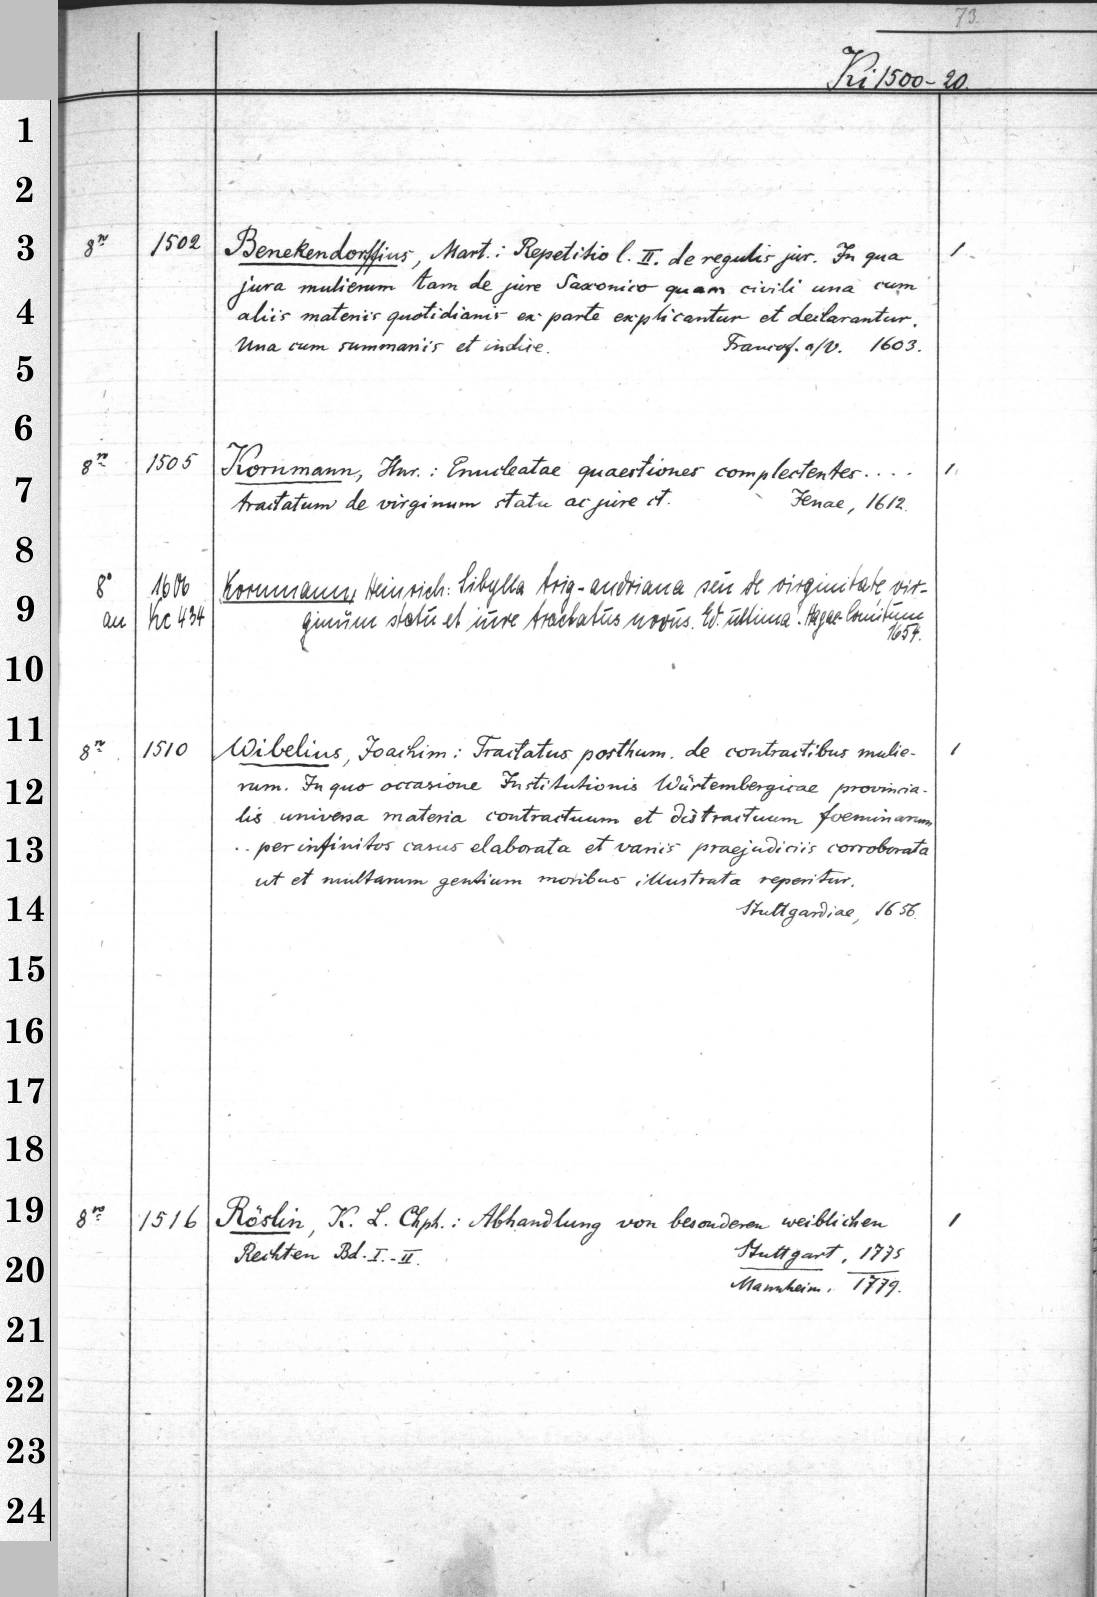 73.
Ki 1500-20.
1
2
3
8ro 1502 Benekendorffius, Mart.: Repetitio l. II. de regulis jur. In qua 1
jura mulierum tam de jure Saxonico quam civili una cum
4
aliis materiis quotidianis ex parte explicantur et declarantur.
Una cum summariis et indice. Francof. a/V. 1603.
5
6
8ro 1505 Kornmann, Hnr.: Enucleatae quaestiones complectentes.... 1
7
tractatum de virginum statu ac jure ct. Jenae, 1612.
8
8° Kornmann, Heinrich: Sibylla trig-andriana seu de virginitate vir-
9
an Kc 434 ginum statu et iure tractatus novus. Ed. ultima. Hagae-Comitum
1654.
10
11
8ro 1510 Wibelius, Joachim: Tractatus posthum. de contractibus mulie- 1
12
rum. In quo occasione Institutionis Würtembergicae provincia-
lis universa materia contractuum et distractuum foeminarum
13
.. per infinitos casus elaborata et variis praejudiciis corroborata
ut et multarum gentium moribus illustrata reperitur.
14
Stuttgardiae, 1656.
15
16
17
18
19
8ro 1516 Röslin, K. L. Chph.: Abhandlung von besonderen weiblichen 1
Rechten Bd. I.-II. Stuttgart, 1775
20
Mannheim, 1779.
21
22
23
24